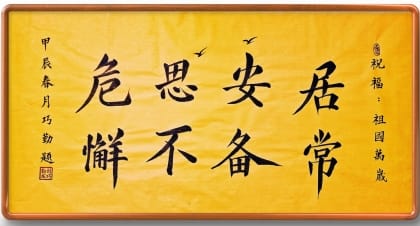 祝福：祖國萬歲
居安思危
常备不懈
甲辰春月巧勤題